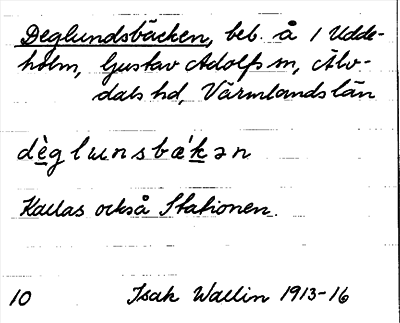 Deglundsbäcken, beb. å 1 Udde-
holm, Gustav Adolfs sn, Älv-
dals hd, Värmlands län
dèglɯnsbæ'kən
Kallas också Stationen.
10 Isak Wallin 1913-16